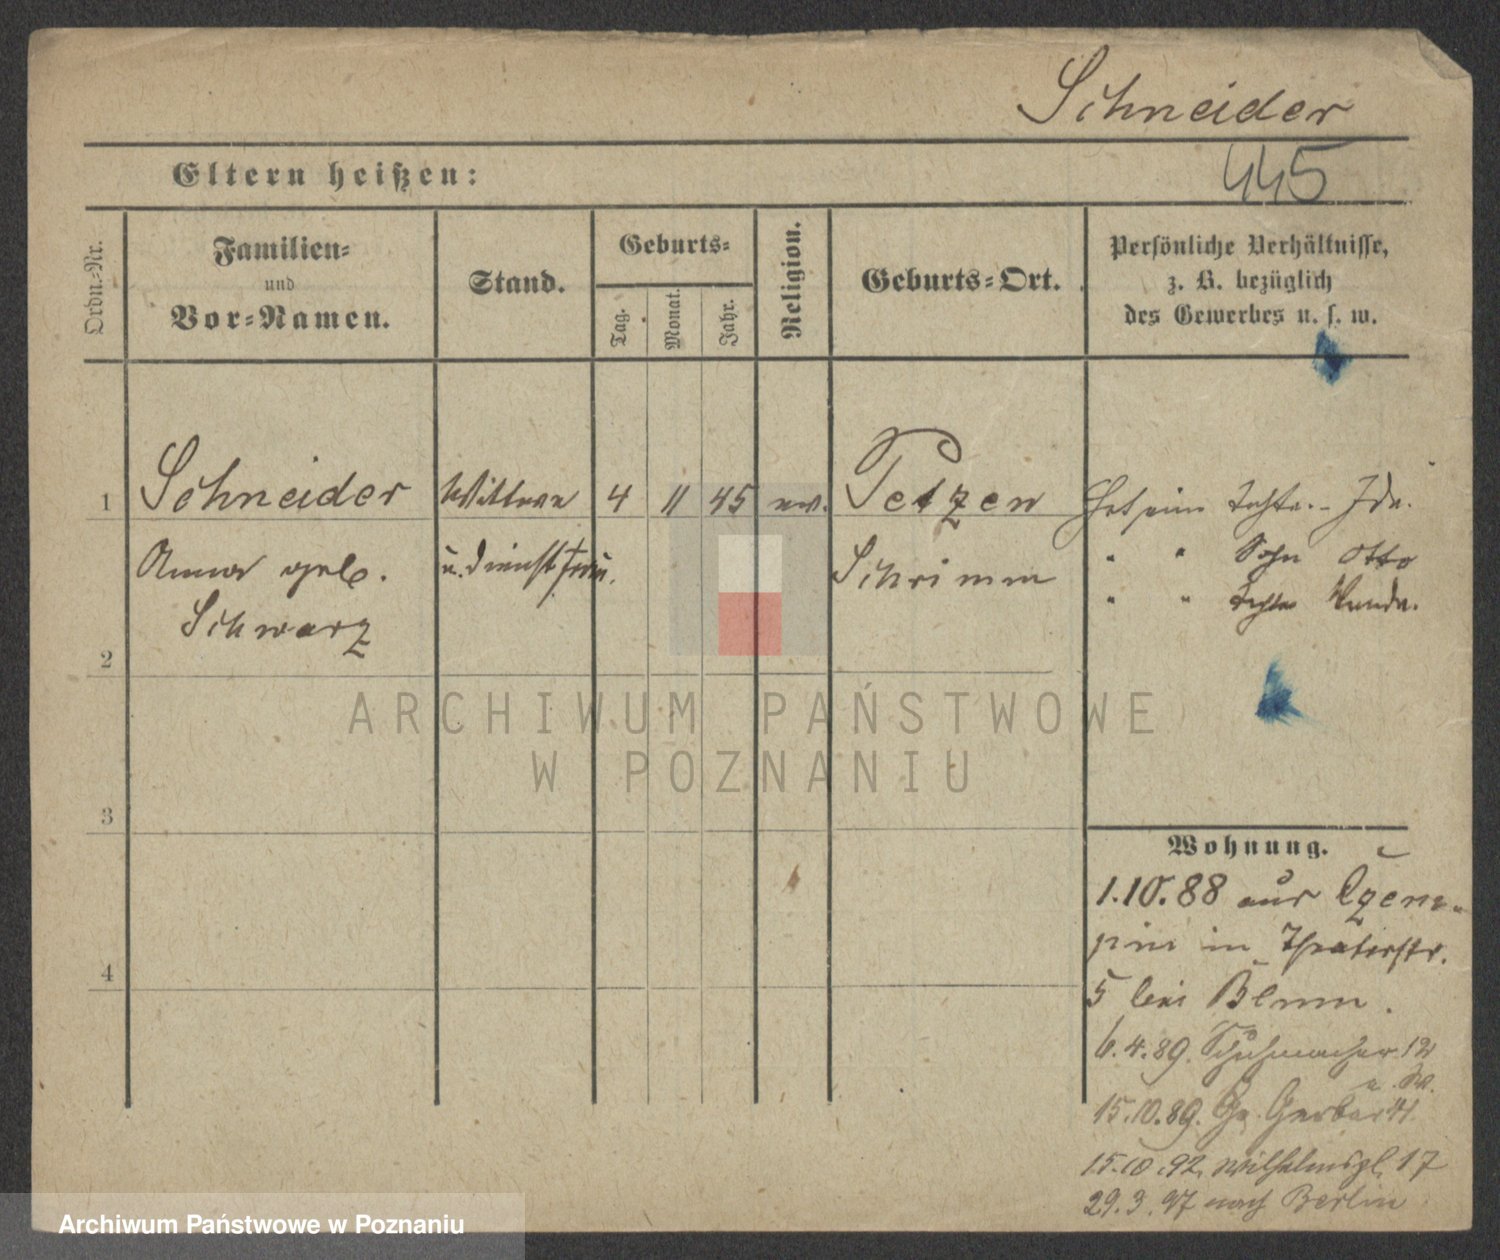 Schneider
445
Eltern heißen:
Ordn.-Nr.
Familien-
und
Vor-Namen.
Stand.
Geburts-
Tag.
Monat.
Jahr.
Religion.
Geburts-Ort.
Persönliche Verhältnisse,
z. B. bezüglich
des Gewerbes u. s. w.
1 Schneider Wittwe 4 11 45 ev. Petzen Hat eine Tochter Ida.
Anna geb. u. Dienstfrau. Schrimm " " Sohn Otto
Schwarz " " Tochter Wanda.
2
ARCHIWUM PAŃSTWOWE
W POZNANIU
3
Wohnung.
1.10.88 aus Czem-
pin in Theaterstr.
4
5 bei Blum.
6.4.89. Schuhmacher 12
15.10.89. Gr. Gerber 41
15.10.92. Wilhelmspl. 17
29.3.97 nach Berlin
Archiwum Państwowe w Poznaniu